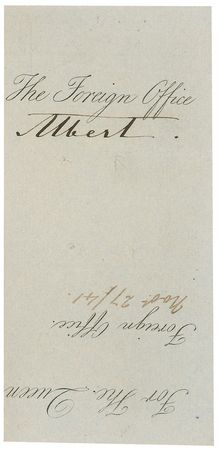 The Foreign Office
Albert.
For The Queen
Foreign Office.
Nov: 27/41.